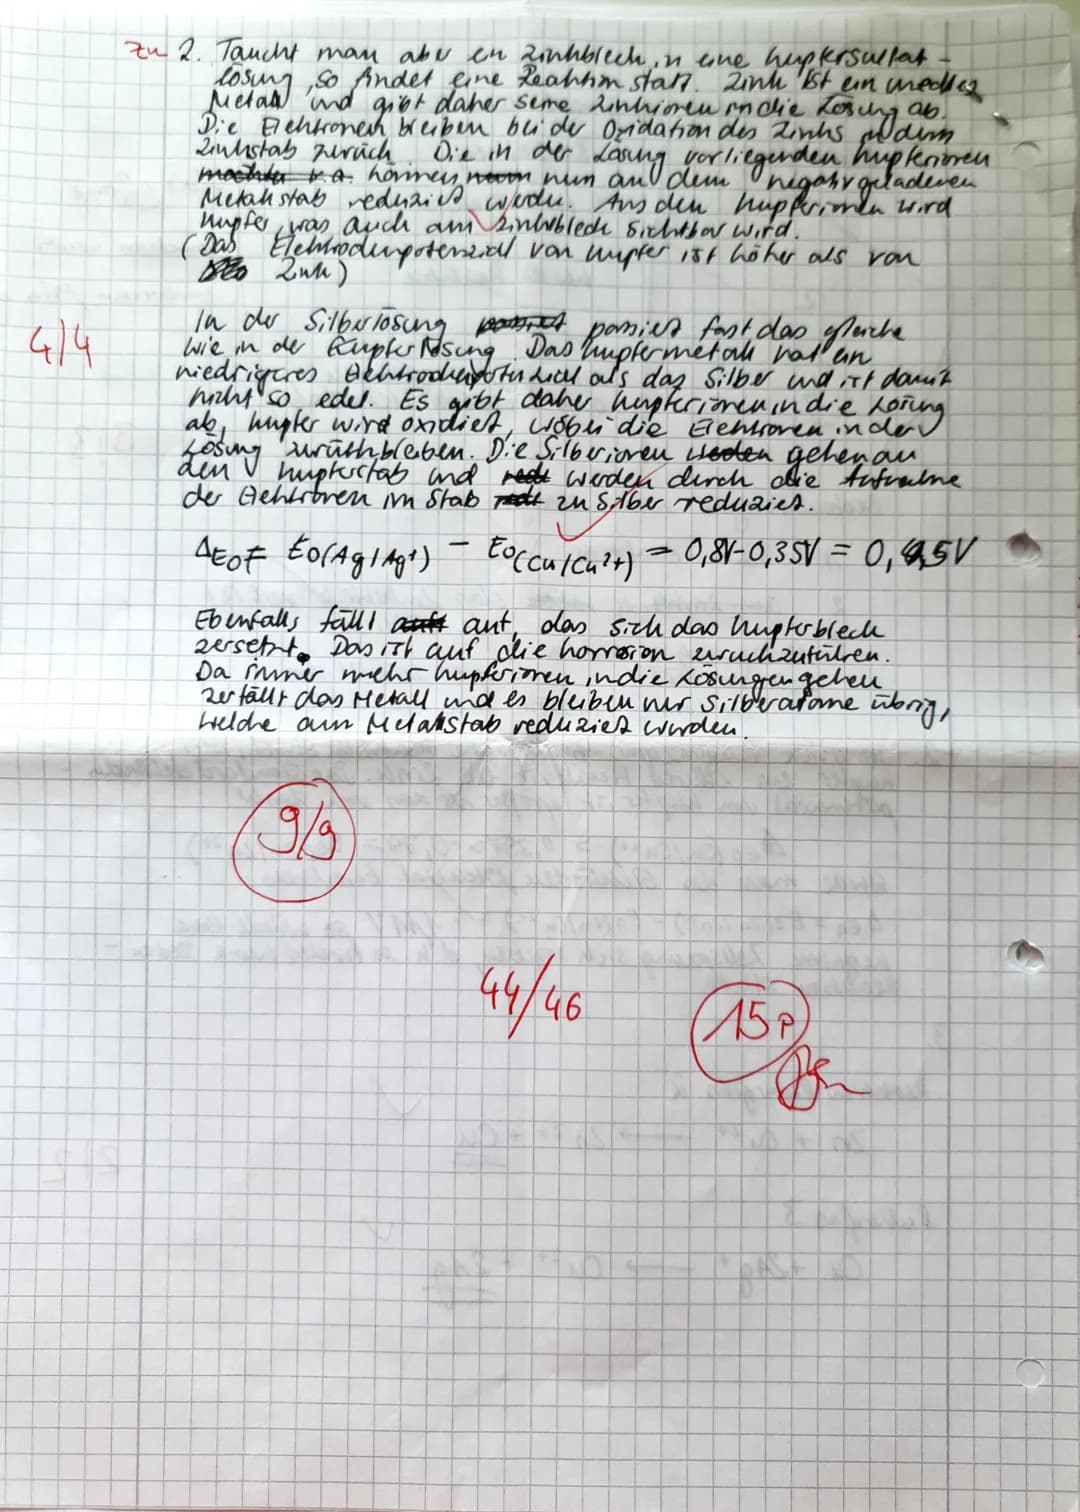 zu 2. Taucht man aber ein Zinkblech in eine Kupfersulfat-
lösung, so findet eine Reaktion statt. Zink ist ein unedles
Metall und gibt daher seine Zinkionen in die Lösung ab.
Die Elektronen bleiben bei der Oxidation des Zinks in dem
Zinkstab zurück. Die in der Lösung vorliegenden Kupferionen
können nun an dem negativ geladenen
Metallstab reduziert werden. Aus den Kupferionen wird
Kupfer, was auch am Zinkblech sichtbar wird.
(Das Elektrodenpotenzial von Kupfer ist höher als von
Zink)
In der Silberlösung passiert fast das gleiche
4/4
wie in der Kupferlösung. Das Kupfermetall hat ein
niedrigeres Elektrodenpotenzial als das Silber und ist damit
nicht so edel. Es gibt daher Kupferionen in die Lösung
ab, Kupfer wird oxidiert, wobei die Elektronen in der
Lösung zurückbleiben. Die Silberionen gehen an
den Kupferstab und werden durch die Aufnahme
der Elektronen im Stab zu Silber reduziert.
ΔE0 = E0(Ag/Ag+) - E0(Cu/Cu2+) = 0,8V-0,35V = 0,45V
Ebenfalls fällt auf, das sich das Kupferblech
zersetzt. Das ist auf die Korrosion zurückzuführen.
Da immer mehr Kupferionen in die Lösungen gehen
zerfällt das Metall und es bleiben nur Silberatome übrig,
welche am Metallstab reduziert wurden.
9/9
44/46
15P